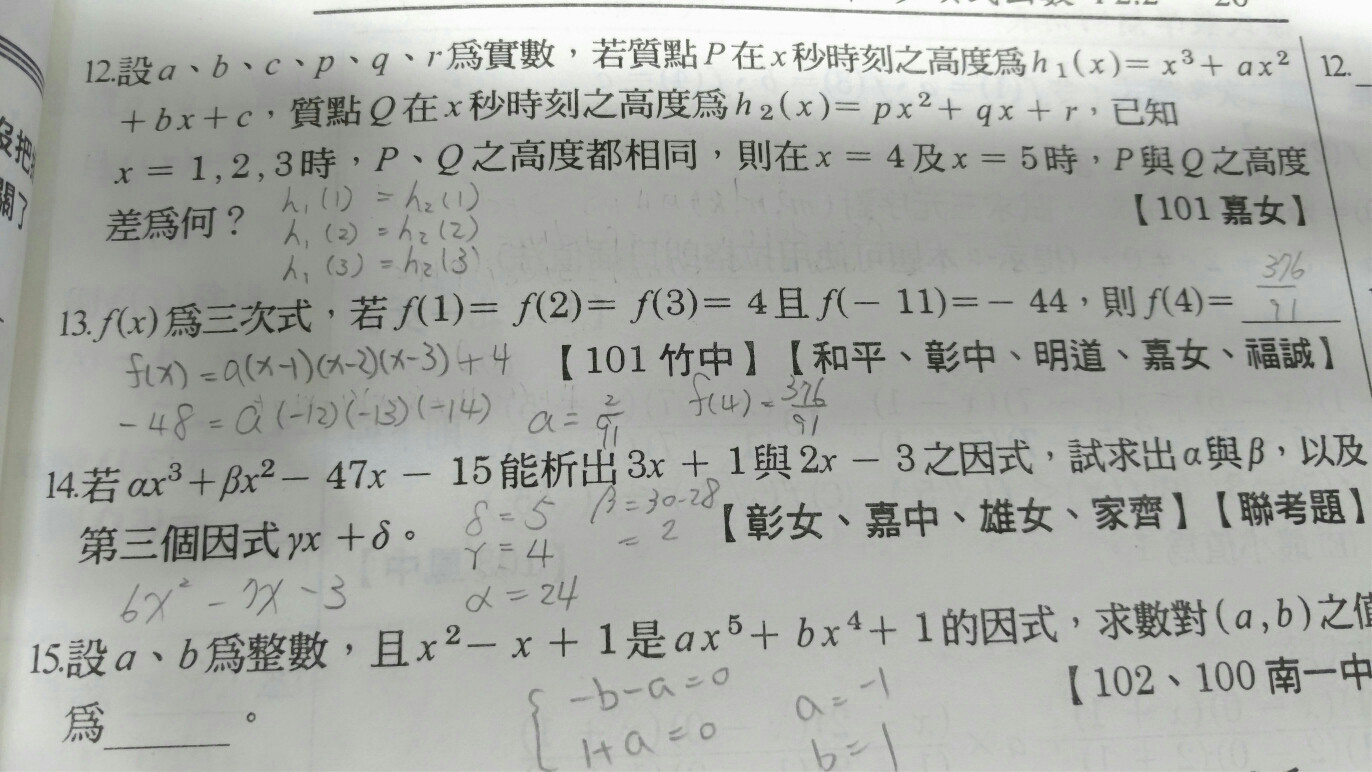 12.設a、b、c、p、q、r爲實數，若質點P在x秒時刻之高度爲h₁(x)= x³+ ax²
+bx+c，質點Q在x秒時刻之高度爲h₂(x)= px²+ qx + r，已知
x = 1, 2, 3時，P、Q之高度都相同，則在x = 4及x = 5時，P與Q之高度
差爲何？ 【101 嘉女】
h₁(1) = h₂(1)
h₁(2) = h₂(2)
h₁(3) = h₂(3)
13.f(x)爲三次式，若f(1)= f(2)= f(3)= 4且f(− 11)=− 44，則f(4)= 376/91
f(x) = a(x-1)(x-2)(x-3)+4 【101 竹中】【和平、彰中、明道、嘉女、福誠】
-48 = a(-12)(-13)(-14) a = 2/91 f(4) = 376/91
14.若αx³+βx²− 47x − 15能析出3x + 1與2x − 3之因式，試求出α與β，以及
第三個因式γx +δ。 【彰女、嘉中、雄女、家齊】【聯考題】
δ = 5 β = 30-28
γ = 4 = 2
6x² - 7x - 3 α = 24
15.設a、b爲整數，且x²− x + 1是ax⁵+ bx⁴+ 1的因式，求數對(a, b)之值
爲 。 【102、100 南一中
-b-a=0 a = -1
1+a=0 b = 1
12.
沒把
關了